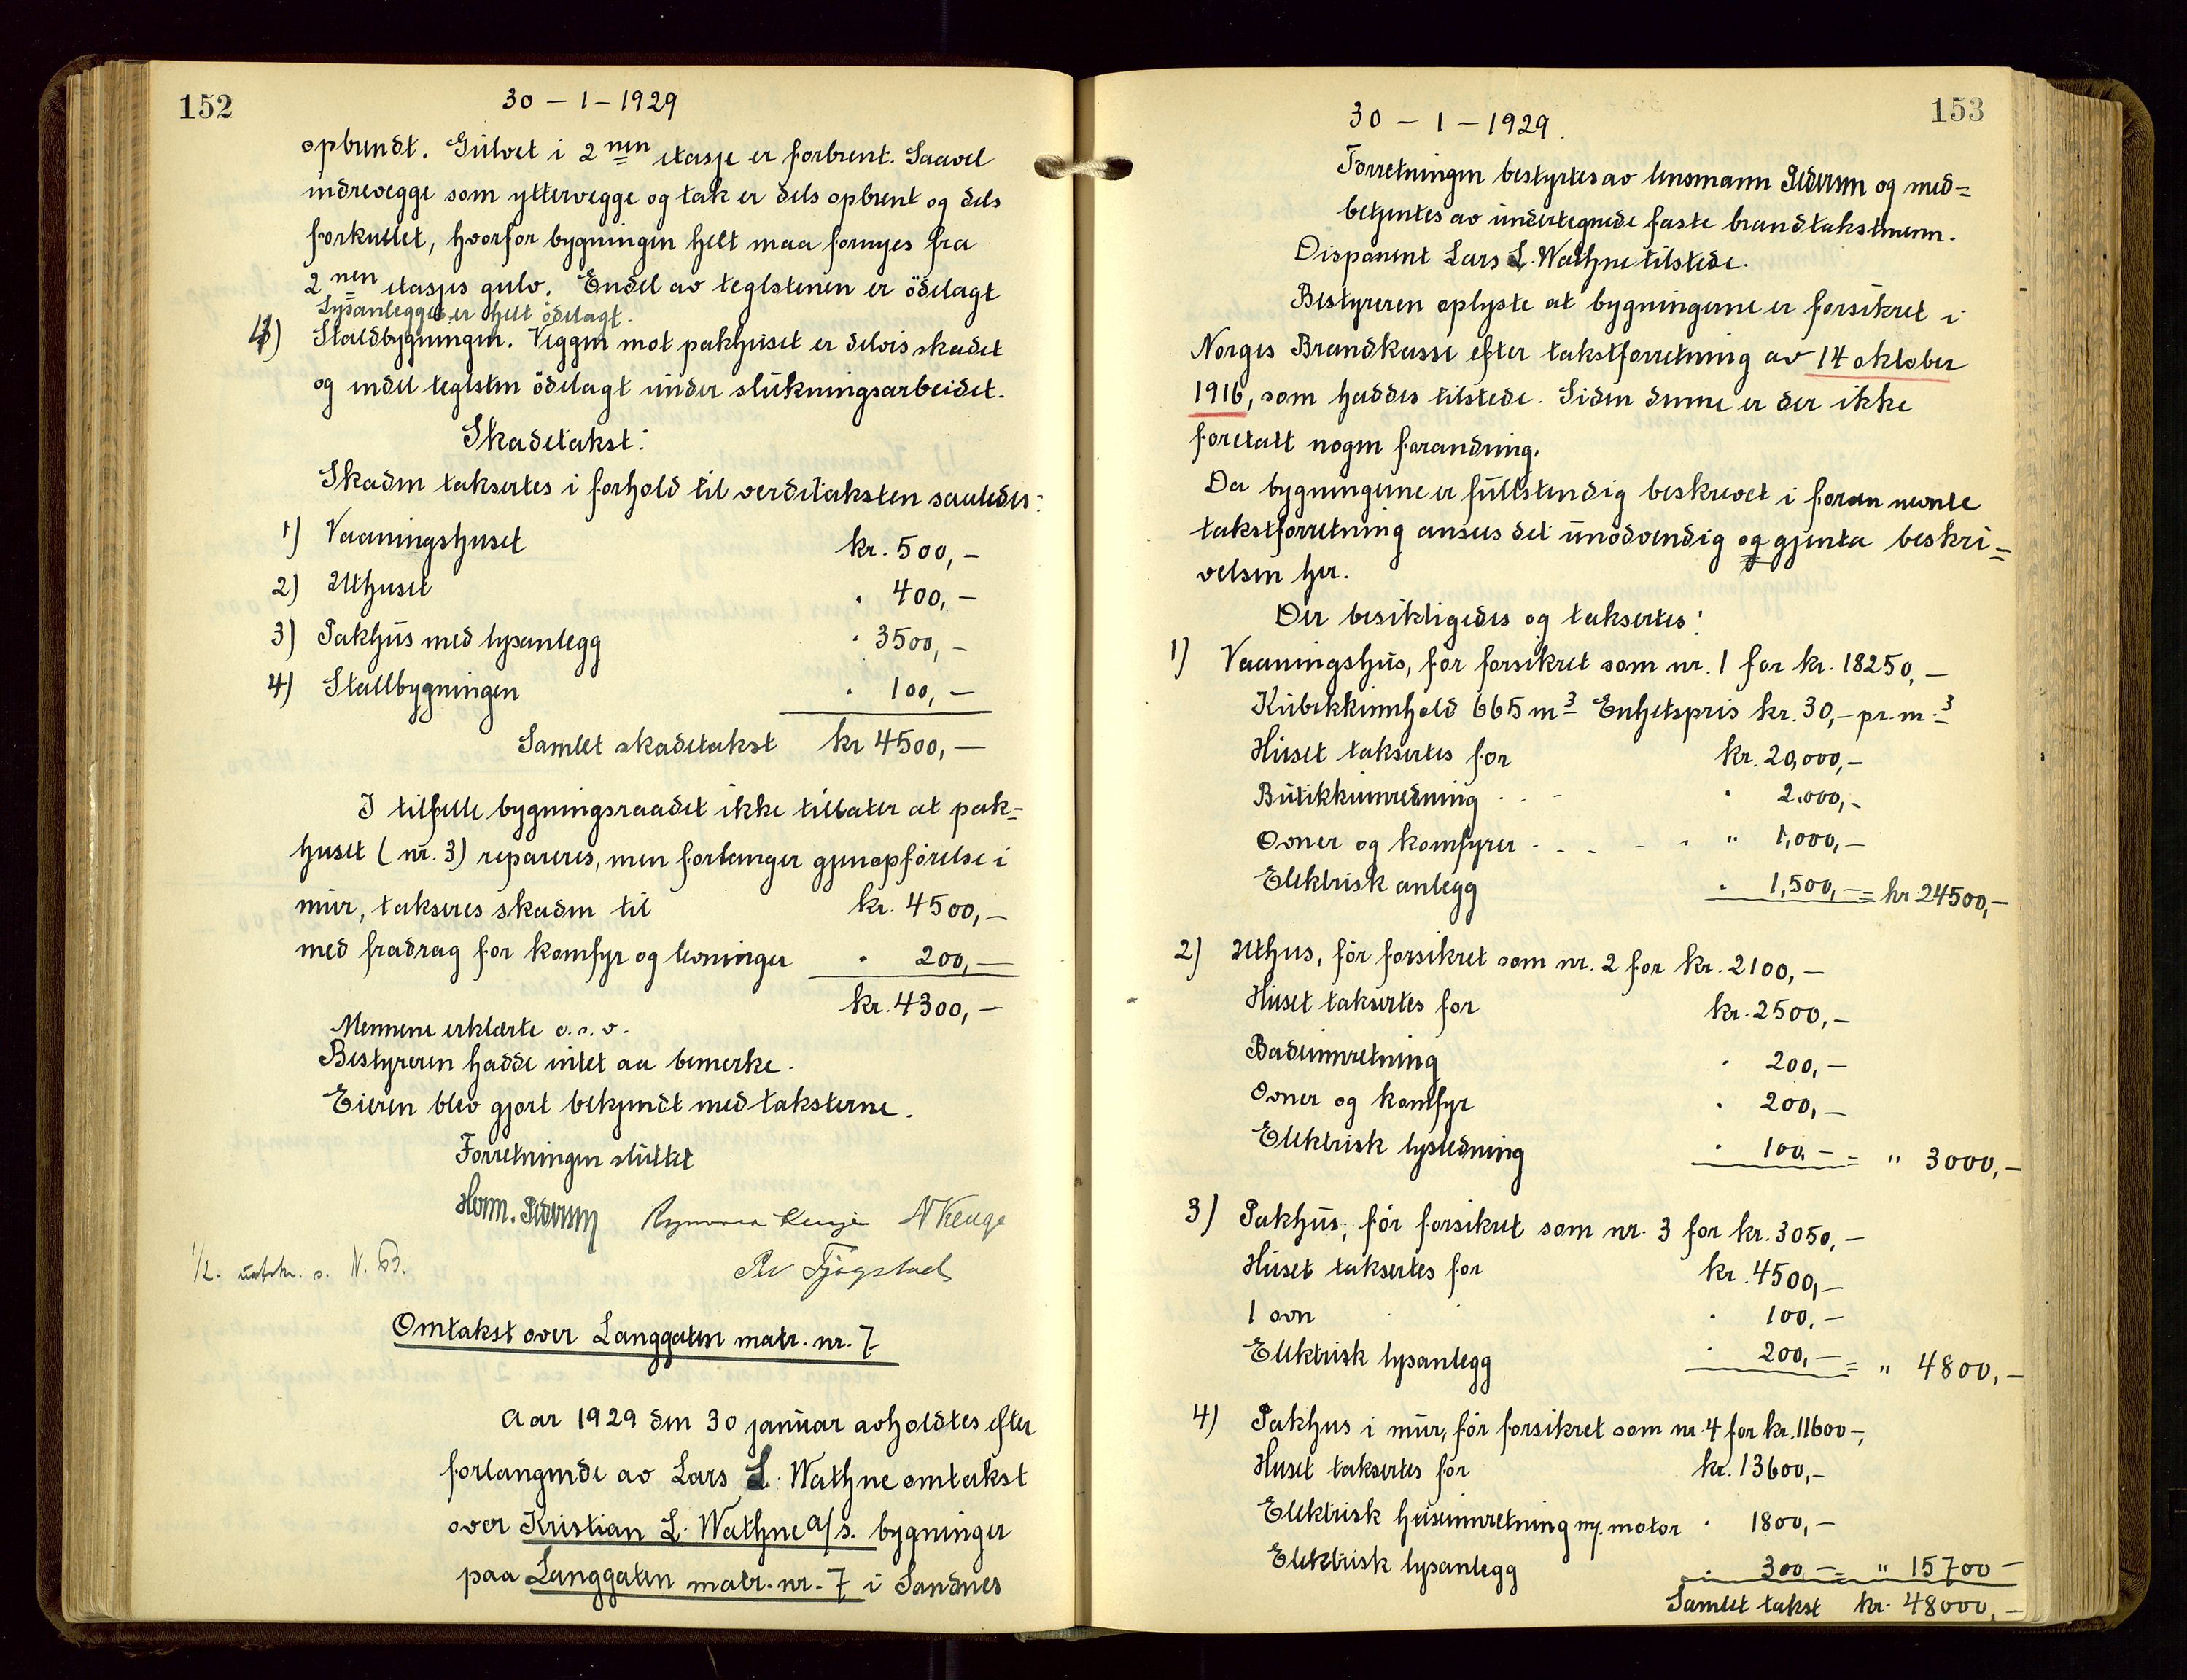 152
30 – 1 – 1929
opbrendt. Gulvet i 2nen etasje er forbrent. Saavel
indrevegge som yttervegge og tak er dels opbrent og dels
forkullet, hvorfor bygningen helt maa fornyes fra
2nen etasjes gulv. Endel av teglstenen er ödelagt
Lysanlegget er helt ödelagt.
4) Staldbygningen. Veggen mot pakhuset er delvis skadet
og endel teglsten ödelagt under slukningsarbeidet.
Skadetakst:
Skaden taksertes i forhold til verditaksten saaledes:
1) Vaaningshuset kr. 500,–
2) Uthuset " 400,–
3) Pakhus med lysanlegg " 3500,–
4) Stallbygningen " 100,–
Samlet skadetakst kr 4500,–
I tilfelle bygningsraadet ikke tillater at pak=
huset (nr. 3) repareres, men forlanger gjenopförelse i
mur, takseres skaden til kr. 4500,–
med fradrag for komfyr og levninger " 200,–
kr. 4300,–
Mennene erklærte o.s.v.
Bestyreren hadde intet aa bemerke.
Eieren blev gjort bekjendt med taksterne.
Forretningen sluttet
Herm. Pedersen Kenje N Kenge
Per Tjøgstad
1/2. utskr. s. N. B.
Omtakst over Langgaten matr. nr. 7
Aar 1929 den 30 januar avholdtes efter
forlangende av Lars L. Wathne omtakst
over Kristian L. Wathne a/s. bygninger
paa Langgaten matr. nr. 7 i Sandnes
153
30 – 1 – 1929.
Forretningen bestyrtes av lensmann Pedersen og med=
betjentes av undertegnede faste brandtakstmenn.
Disponent Lars L. Wathne tilstede.
Bestyreren oplyste at bygningerne er forsikret i
Norges Brandkasse efter takstforretning av 14 oktober
1916, som haddes tilstede. Siden denne er der ikke
foretatt nogen forandring.
Da bygningerne er fullstendig beskrevet i foran nevnte
takstforretning ansees det unödvendig og gjenta beskri=
velsen her.
Der besiktigedes og taksertes:
1) Vaaningshus, för forsikret som nr. 1 for kr. 18250,–
Kubikkinnhold 665 m3 Enhetspris kr. 30,– pr. m.3
Huset taksertes for kr. 20,000,–
Butikkinnredning " 2.000,–
Ovner og komfyrer " 1,000,–
Elektrisk anlegg " 1,500,– = kr 24500,–
2) Uthus, för forsikret som nr. 2 for kr. 2100,–
Huset taksertes for kr. 2500,–
Badeinnretning " 200,–
Ovner og komfyr " 200,–
Elektrisk lysledning " 100,– = " 3000,–
3) Pakhus, för forsikret som nr. 3 for kr. 3050,–
Huset taksertes for kr. 4500,–
1 ovn " 100,–
Elektrisk lysanlegg " 200,– = " 4800,–
4) Pakhus i mur, för forsikret som nr. 4 for kr. 11600–,
Huset taksertes for kr. 13600,–
Elektrisk heiseinnretning m. motor " 1800,–
Elektrisk lysanlegg " 300,– = " 15700–
Samlet takst kr. 48000,–